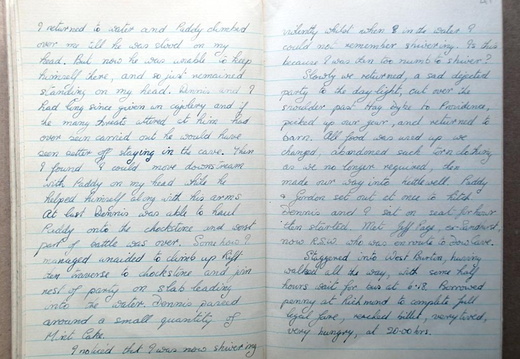 I returned to water and Paddy climbed
over me till he was stood on my
head. But now he was unable to help
himself here, and so just remained
standing on my head. Dennis and I
had long since given up and if
he many threats uttered at him had
ever been carried out he would have
been better off staying in the cave. Then
I found I could move downstream
with Paddy on my head while he
helped himself along with his arms
At last Dennis was able to haul
Paddy onto the chockstone and worst
part of battle was over. Somehow I
managed unaided to climb up
then traverse to chockstone and join
rest of party on slab leading
into the water. Dennis passed
around a small quantity of
Mint Cake.
I noticed that I was now shivering
violently whilst when I in the water I
could not remember shivering. Is this
because I was then too numb to shiver?
Slowly we returned, a sad dejected
party to the day light, cut over the
shoulder past Hag Dyke to Providence,
picked up our gear, and returned to
barn. All food was used up, we
changed, abandoned such torn clothing
as we no longer required, then
made our way into Kettlewell. Paddy
& Gordon set out at once to hitch
Dennis and I sat on seat for hour
then started. Met Jeff Page,
now R.S.W. who was en route to
Staggered into West Burton, having
walked all the way, with some half
hours wait for bus at 6:18. Borrowed
penny at Richmond to complete full
fare, reached billet, very tired,
very hungry, at 20·00hrs.